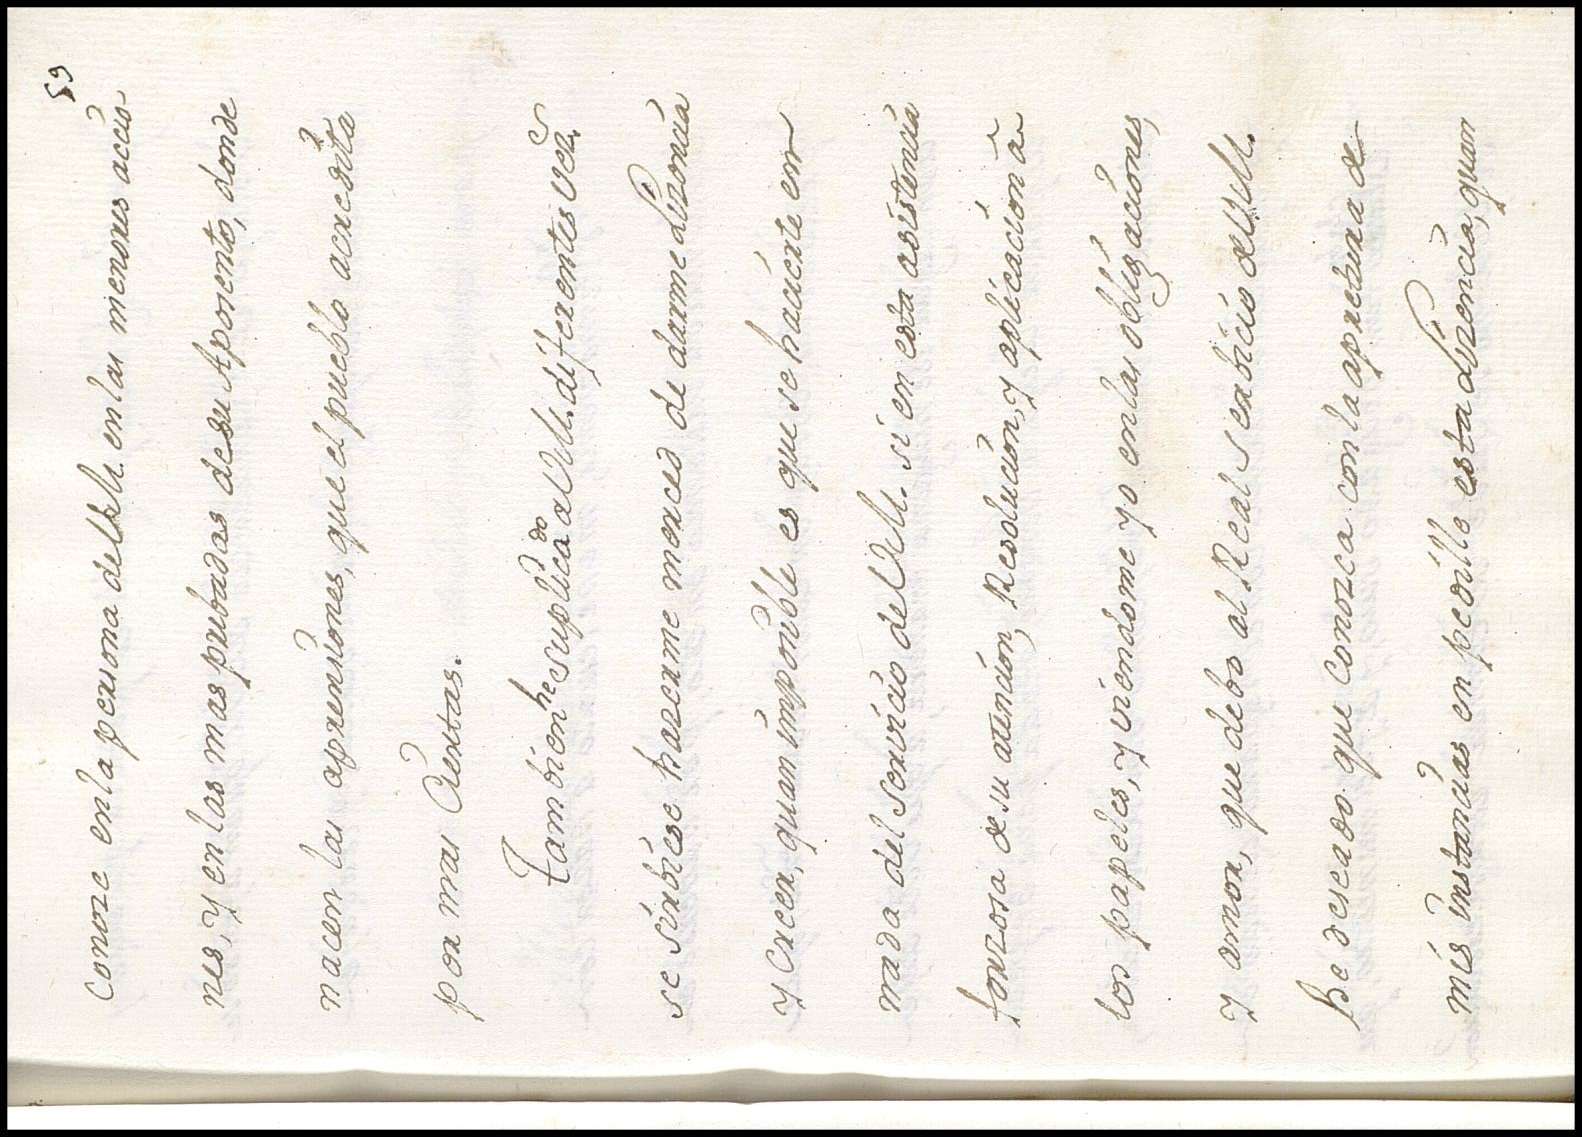 59
conoze en la persona de V.M. en las menores accio-
nes, y en las mas pribadas de su Aposento, donde
nacen las aprensiones, que el pueblo acredita
por mas Ciertas.
Tambien he suplicado a V.M. diferentes vezes
se sirbiese haserme merced de darme lizencia
y creer, quan imposible es que se hacierte en
nada del servicio de V.M. si en esta asistencia
forzosa de su atencion, Resolucion, y aplicacion â
los papeles, y viendome yo en las obligaciones,
y amor, que debo al Real Serbicio de V.M.
he deseado que conozca con la apretura de
mis instancias en pedille esta lizencia, quan